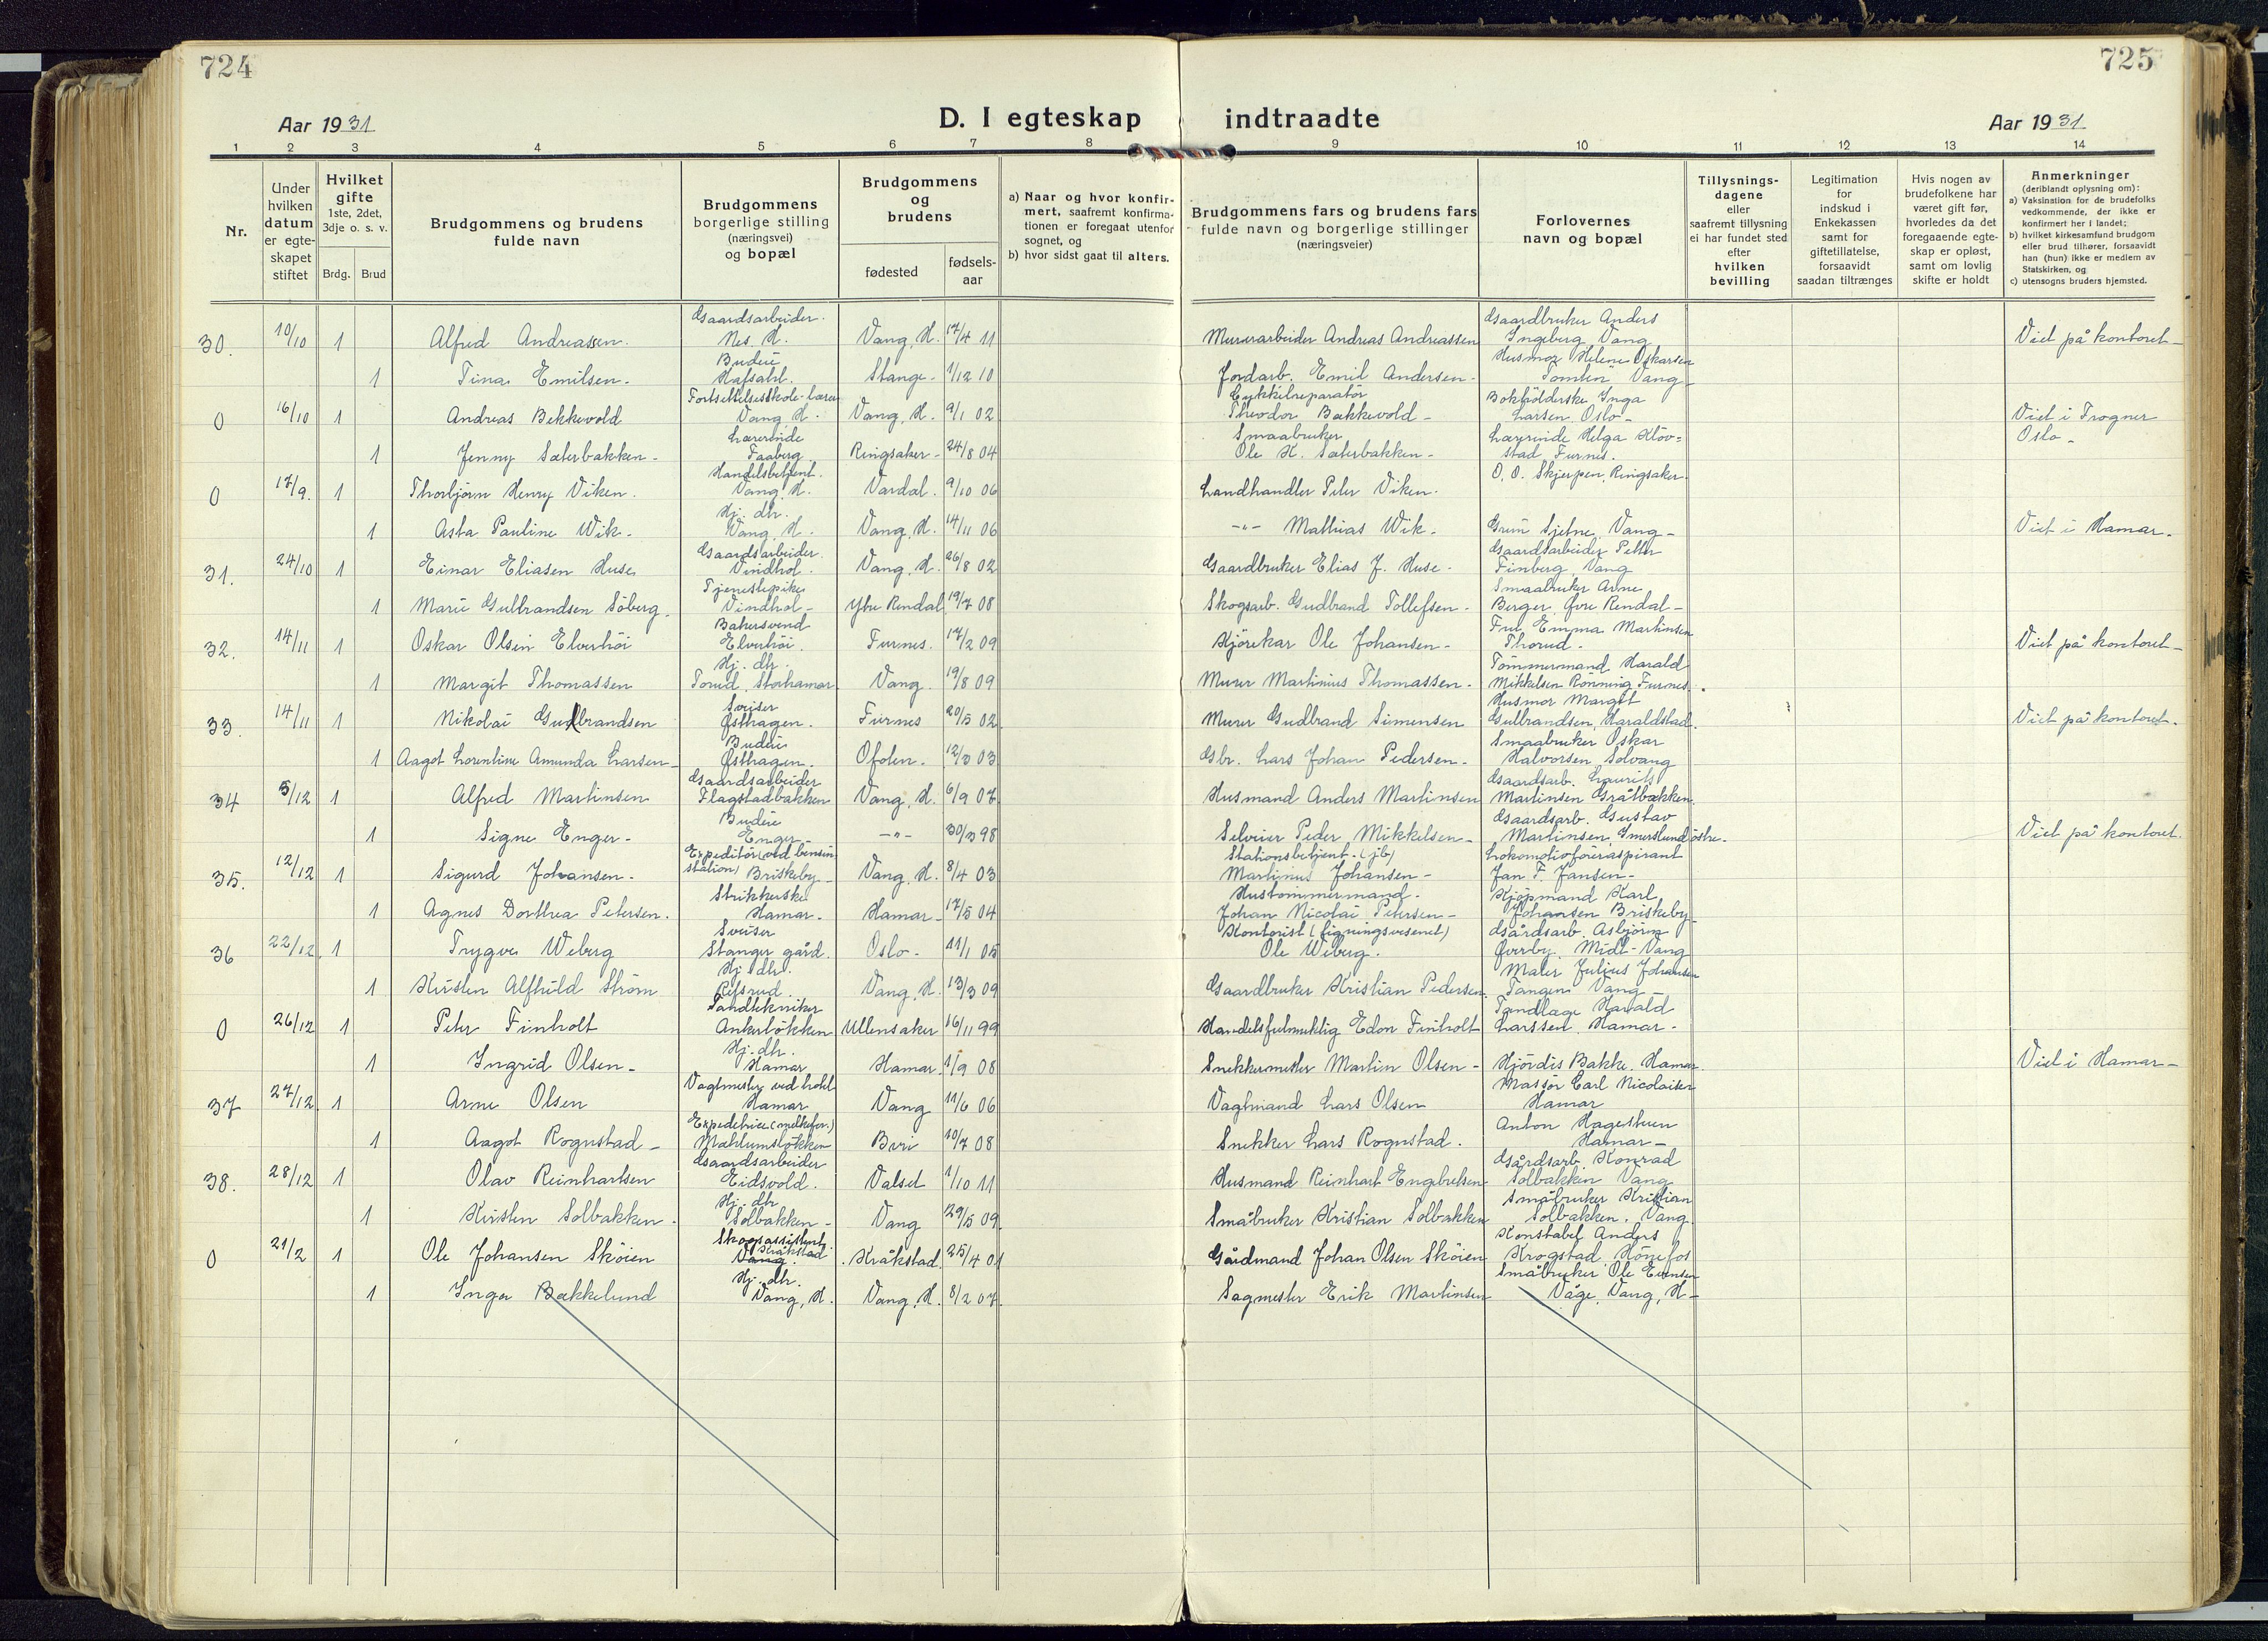 724
725
Aar 1931
D. I egteskap indtraadte
Aar 1931
1 2 3 4 5 6 7 8 9 10 11 12 13 14
Nr.
Under hvilken datum er egte-skapet stiftet
Hvilket gifte 1ste, 2det, 3dje o. s. v.
Brdg. Brud
Brudgommens og brudens fulde navn
Brudgommens borgerlige stilling (næringsvei) og bopæl
Brudgommens og brudens
fødested
fødsels-aar
a) Naar og hvor konfir-mert, saafremt konfirma-tionen er foregaat utenfor sognet, og
b) hvor sidst gaat til alters.
Brudgommens fars og brudens fars fulde navn og borgerlige stillinger (næringsveier)
Forlovernes navn og bopæl
Tillysnings-dagene eller saafremt tillysning ei har fundet sted efter hvilken bevilling
Legitimation for indskud i Enkekassen samt for giftetillatelse, forsaavidt saadan tiltrænges
Hvis nogen av brudefolkene har været gift før, hvorledes da det foregaaende egte-skap er opløst, samt om lovlig skifte er holdt
Anmerkninger (deriblandt oplysning om):
a) Vaksination for de brudefolks vedkommende, der ikke er konfirmert her i landet;
b) hvilket kirkesamfund brudgom eller brud tilhører, forsaavidt han (hun) ikke er medlem av Statskirken, og
c) utensogns bruders hjemsted.
30. 10/10 1 Alfred Andreassen. Gaardsarbeider. Nes. H. Vang, H. 17/4 11 Murerarbeider Andreas Andreassen Gaardbruker Anders Ingeberg, Vang Viet på kontoret
1 Tina Emilsen. Budeie Hafsahl. Stange. 1/12 10 Jordarb. Emil Andersen Husmor Helene Oskarsen Tomten Vang
0 16/10 1 Andreas Bekkevold Fortsettelsesskole-lærer Vang H. Vang, H. 9/1 02 Cykkelreparatör Theodor Bækkevold Bokholderske Inga Larsen Oslo Viet i Frogner Oslo
1 Jenny Sæterbakken Lærerinde Faaberg Ringsaker 24/8 04 Smaabruker Ole K. Sæterbakken Lærerinde Helga Klöv=stad Furnes.
0 17/9. 1 Thorbjörn Henry Viken. Handelsbetjent. Vang, H. Vardal. 9/10 06 Landhandler Peter Viken. O. O. Skjerpen, Ringsaker
1 Asta Pauline Wik. Hj. dtr. Vang, H. Vang, H. 14/11 06 -"- Mathias Wik. Sjetne, Vang Viet i Hamar.
31. 24/10 1 Einar Eliasen Huse Gaardsarbeider. Vindhol. Vang, H. 26/8 02 Gaardbruker Elias J. Huse. Gaardsarbeider Petter Finberg, Vang
1 Marie Gulbrandsen Söberg. Tjenestepike Vindhol Ytre Rendal 19/7 08 Skogsarb. Gudbrand Tollefsen. Smaabruker Arne Berger, Øvre Rendal
32. 14/11 1 Oskar Olsen Elverhöi Bakersvend Elverhöi. Furnes. 17/2 09 Kjörekar Ole Johansen. Fru Emma Martinsen Thorud. Viet på kontoret
1 Margit Thomassen Hj. dtr. Torud, Storhamar Vang. 19/8 09 Murer Martinius Thomassen. Tömmermand Harald Mikkelsen Rönning, Furnes.
33. 14/11 1 Nikolai Gudbrandsen Sveiser Østhagen. Furnes 20/5 02 Murer Gudbrand Simensen Husmor Margit Gulbrandsen, Haraldstad. Viet på kontoret.
1 Aagot Lorentine Amunda Larsen Budeie Østhagen. Ofoten. 12/3 03 Gbr. Lars Johan Pedersen. Smaabruker Oskar Halvorsen, Solvang
34 5/12 1 Alfred Martinsen Gaardsarbeider Flagstadbakken Vang, H. 6/9 07 Husmand Anders Martinsen Gaardsarb. Laurits Martinsen Gråtbækken.
1 Signe Enger. Budeie Enger -"- 30/3 98 Selveier Peder Mikkelsen Gaardsarb. Gustav Martinsen, Imerslund østre. Viet på kontoret.
35. 12/12 1 Sigurd Johansen. Expeditör (ved bensin station) Briskeby Vang, H. 8/4 03 Stationsbetjent. (jb) Martinus Johansen Lokomotivföreraspirant Jan F. Jansen
1 Agnes Dorthea Petersen. Strikkerske Hamar. Hamar 17/5 04 Hustömmermand. Johan Nicolai Petersen Kjöpmand Karl Johansen Briskeby
36 22/12 1 Trygve Weberg Sveiser Stanger gård. Oslo. 11/1 05 Kontorist (ligningsvesenet) Ole Weberg. Gårdsarb. Asbjörn Överby, Midt-Vang
1 Kirsten Alfhild Ström Hj. dtr. Refsrud. Vang, H. 13/3 09 Gaardbruker Kristian Pedersen. Maler Julius Johansen Tangen Vang
0 26/12 1 Peter Finholt Tandtekniker Ankerlökken Ullensaker 16/11 99 Handelsfulmektig Edon Finholt Tandlæge Harald Larssen, Hamar.
1 Ingrid Olsen Hj. dtr. Hamar Hamar 1/9 08 Snekkermester Martin Olsen Hjördis Bakke, Hamar. Viet i Hamar
37 27/12 1 Arne Olsen Vagtmester ved hotel Hamar Vang 11/6 06 Vagtmand Lars Olsen Massör Carl Nicolaisen Hamar
1 Aagot Rognstad Expeditrice (melkefor.) Mæhlumsløkken Biri 10/7 08 Snekker Lars Rognstad. Anton Hagestuen Hamar
38. 28/12 1 Olav Reinhartsen Gaardsarbeider Eidsvold. Valset 1/10 11 Husmand Reinhart Engebretsen Gårdsarb. Konrad Solbakken Vang
1 Kirsten Solbakken. Hj. dtr. Solbakken Vang 29/5 09 Småbruker Kristian Solbakken Småbruker Kristian Solbakken, Vang
0 21/2 1 Ole Johansen Sköien Skogsassistent Kråkstad Vang. Kråkstad 25/4 01 Gårdmand Johan Olsen Sköien Konstabel Anders Krogstad, Hönefos
1 Inga Bækkelund Hj. dtr. Vang, H. Vang, H. 8/2 07 Sagmester Erik Martinsen Småbruker Ole Evensen Våge, Vang, H